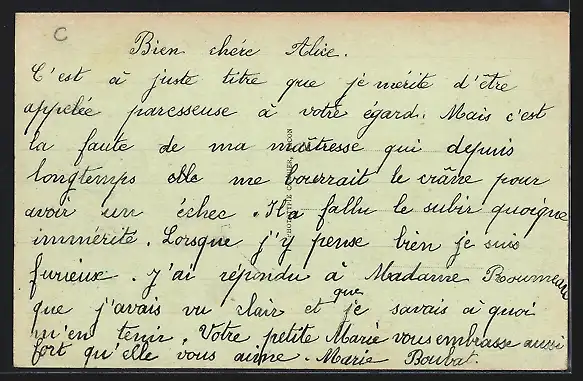 C
Bien chére Alice.
C'est à juste titre que je mérite d'être
appelée paresseuse à votre égard. Mais c'est
la faute de ma maîtresse qui depuis
longtemps elle me bourrait le crâne pour
avoir un échec. Il a fallu le subir quoique
immérité. Lorsque j'y pense bien je suis
furieux. J'ai répondu à Madame Roumeau
que j'avais vu clair et que je savais à quoi
m'en tenir. Votre petite Marie vous embrasse aussi
fort qu'elle vous aime. Marie Boubat.